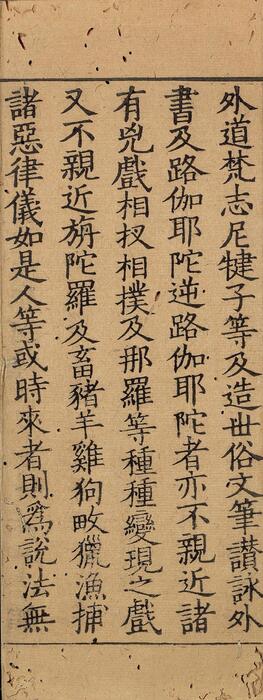 外道梵志尼犍子等及造世俗文筆讃詠外
書及路伽耶陀逆路伽耶陀者亦不親近諸
有兇戲相扠相撲及那羅等種種變現之戲
又不親近旃陀羅及畜豬羊雞狗畋獵漁捕
諸惡律儀如是人等或時來者則爲說法無